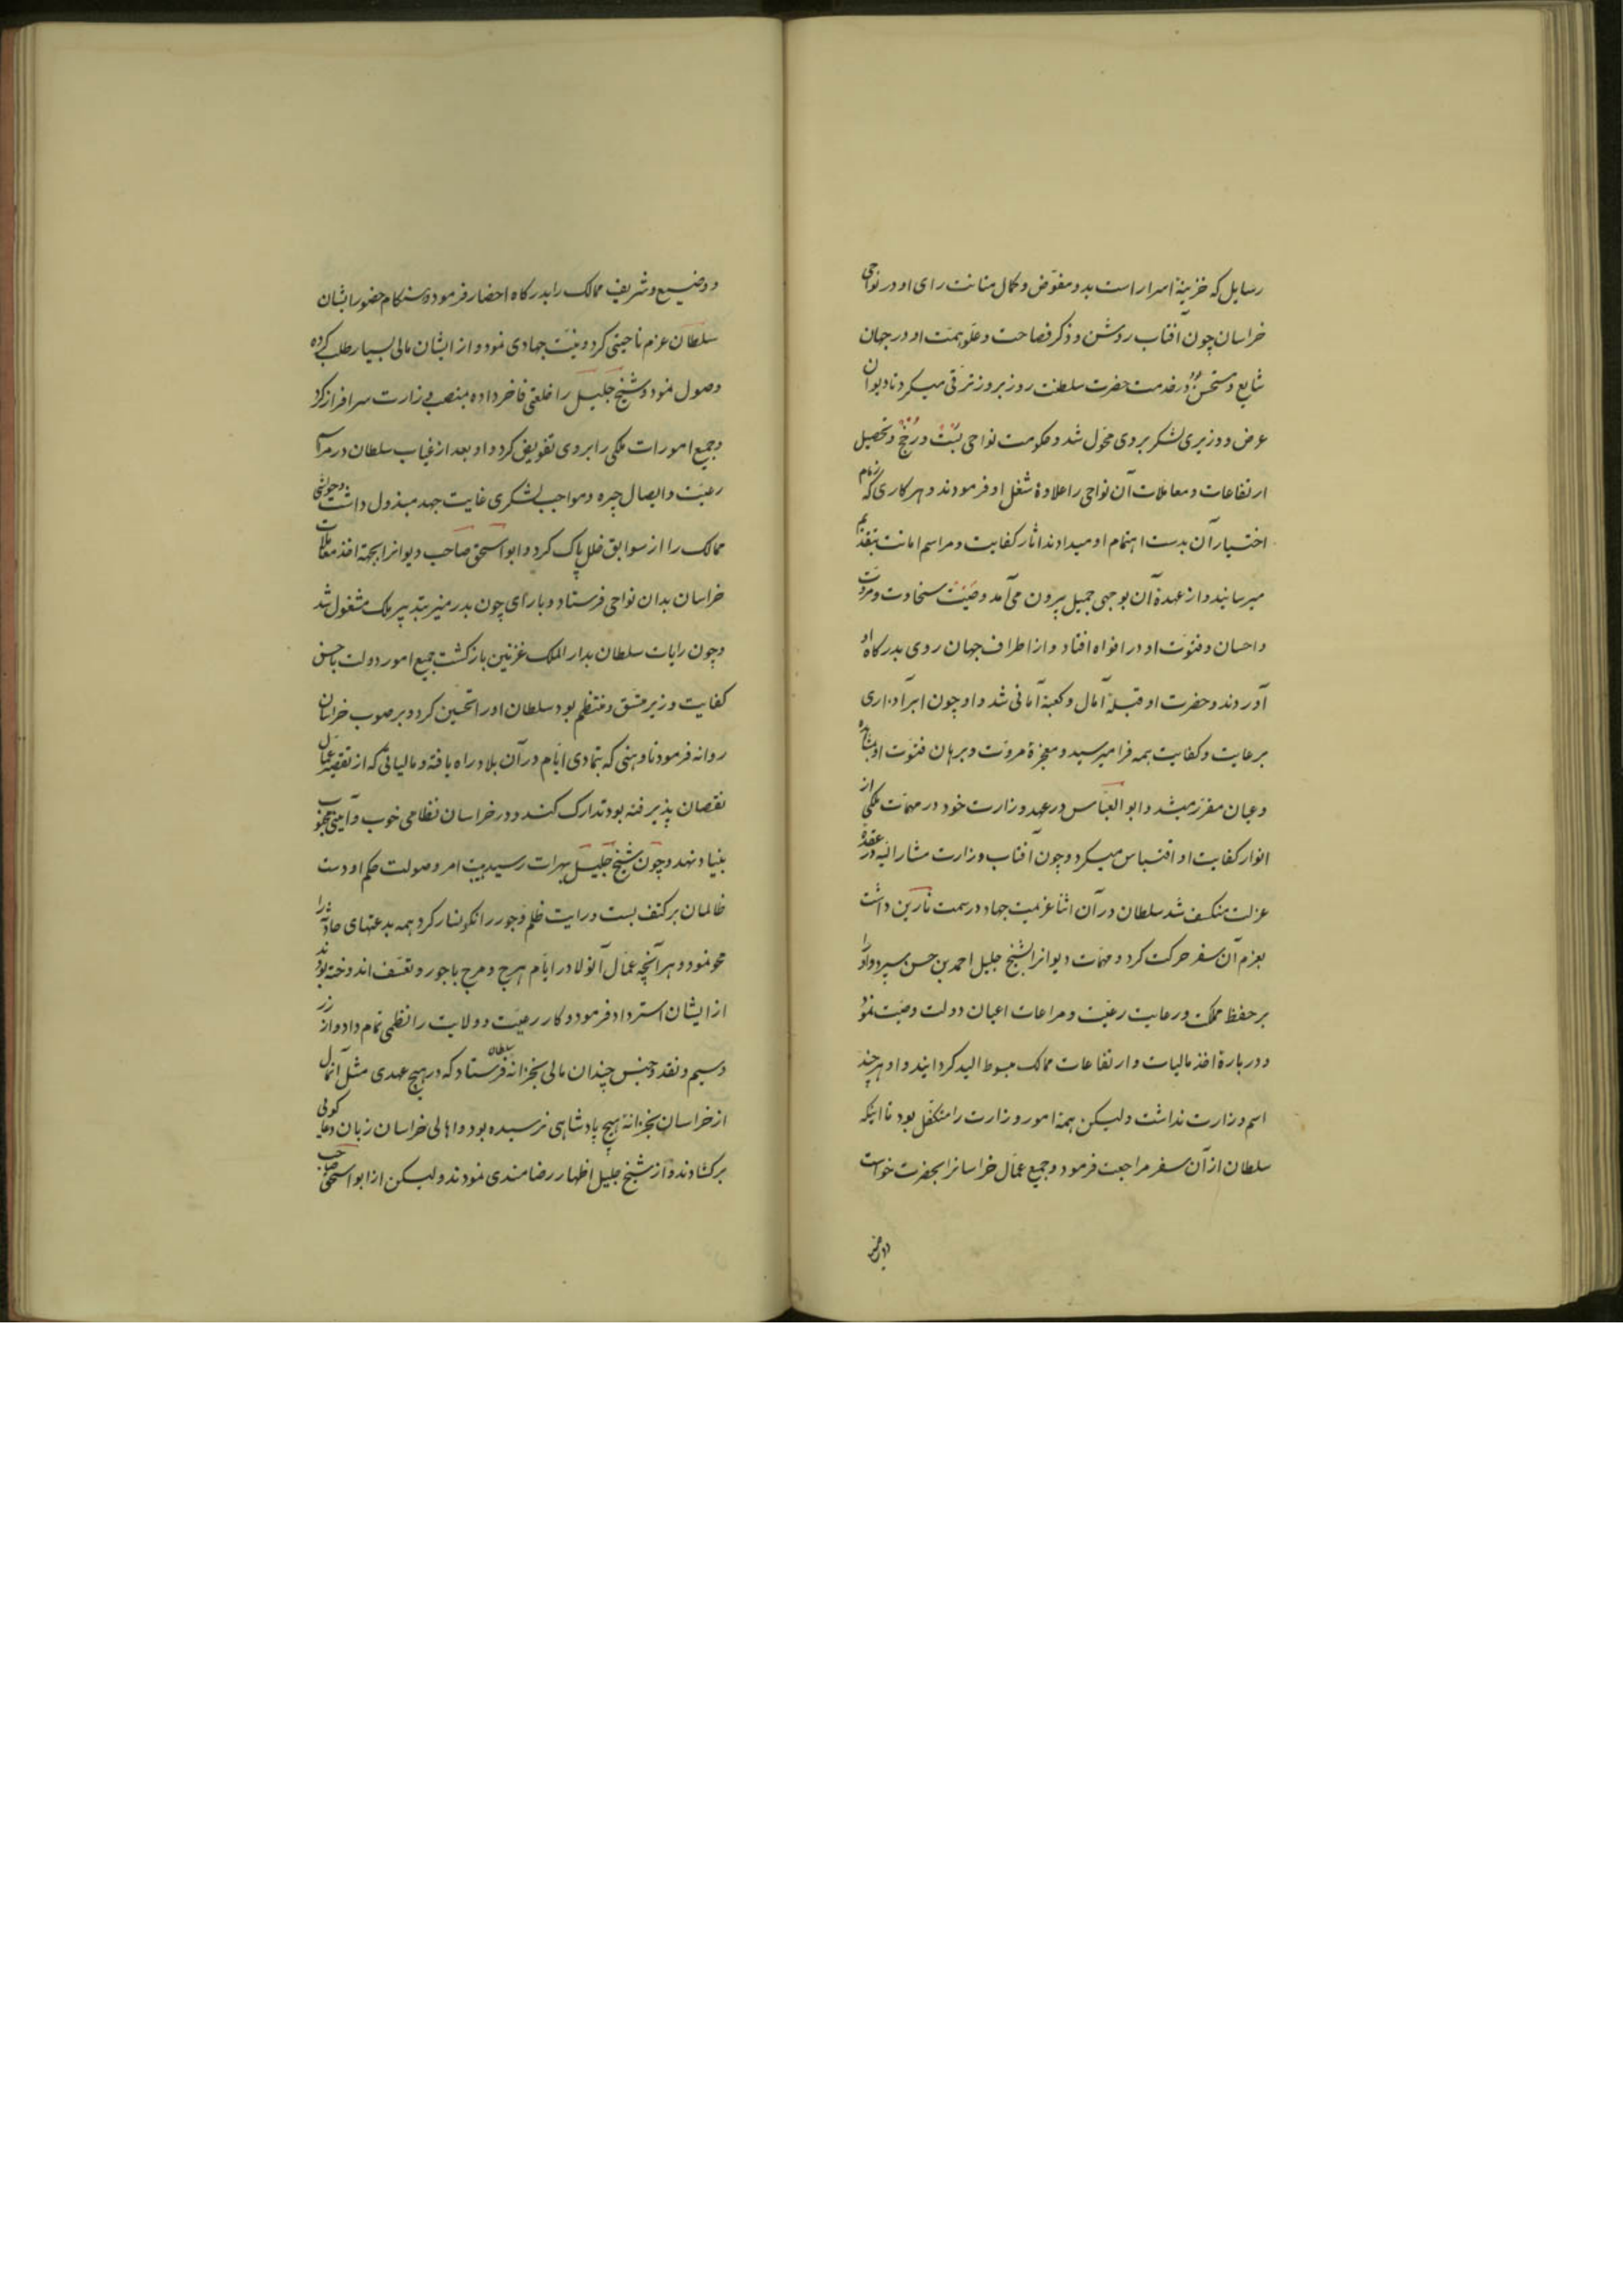 رسایل که خزینهٔ اسرار است بدو مفوّض و کمال متانت رای او در نواحی
خراسان چون آفتاب روشن و ذکر فصاحت و علو همّت او در جهان
شایع و مستحسن و در خدمت حضرت سلطنت روز بروز ترقی میکرد تا دیوان
عرض و وزیری لشکر بروی محوّل شد و حکومت نواحی بُست و رُخّج و تحصیل
ارتفاعات و معاملات آن نواحی را علاوهٔ شغل او فرمودند و هر کاری که زمام
اختیار آن بدست اهتمام او میدادند اثار کفایت و مراسم امانت بتقدیم
میرسانید و از عهدهٔ آن بوجهی جمیل بیرون می‌آمد و صیت سخاوت و مروّت
و احسان و فتوّت او در افواه افتاد و از اطراف جهان روی بدرکاه او
آوردند و حضرت او قبلهٔ آمال و کعبهٔ آمانی شد و او چون ابر آذاری
برعایت و کفایت همه فرا میرسید و معجزهٔ مروّت و برهان فتوّت او بمشاهده
و عیان مقرّر میشد و ابو العبّاس در عهد وزارت خود در مهمّات ملکی از
انوار کفایت او اقتباس میکرد و چون آفتاب وزارت مشار الیه در عقدهٔ
عزلت منکسف شد سلطان در آن اثنا عزیمت جهاد در سمت نارین داشت
بعزم آن سفر حرکت کرد و مهمّات دیوانرا بشیخ جلیل احمد بن حسن سپرد و او را
بر حفظ مملکت و رعایت رعیّت و مراعات اعیان دولت وصیّت نمود
و در بارهٔ اخذ مالیات و ارتفاعات ممالک مبسوط الید کردانید و او هر چند
اسم وزارت نداشت ولیکن همهٔ امور وزارت را متکفّل بود تا اینکه
سلطان از آن سفر مراجعت فرمود و جمیع عمّال خراسانرا بحضرت خواست
و وضیع
و وضیع و شریف ممالک را بدرکاه احضار فرموده هنکام حضور ایشان
سلطان عزم ناحیتی کرد و نیّت جهادی نمود و از ایشان مالی بسیار طلب کرده
وصول نمود و شیخ جلیل را خلعتی فاخر داده بمنصب وزارت سرافراز کرد
و جمیع امورات ملکی را بروی تفویض کرد و او بعد از غیاب سلطان در مراعات
رعیّت و ایصال جیره و مواجب لشکری غایت جهد مبذول داشت و حواشی
ممالک را از سوابق خلل پاک کرد و ابو اسحق صاحب دیوانرا بجهة اخذ معاملات
خراسان بدان نواحی فرستاد و با رای چون بدر منیر بتدبیر ملک مشغول شد
و چون رایات سلطان بدار الملک غزنین بازکشت جمیع امور دولت باحسن
کفایت وزیر متّسق و منتظم بود سلطان او را تحسین کرد و بر صوب خراسان
روانه فرمود تا وهنی که بتمادی ایّام در آن بلاد راه یافته و مالیاتی که از تقصیر عمّال
نقصان پذیرفته بود تدارک کند و در خراسان نظامی خوب و آیینی محبوب
بنیاد نهد و چون شیخ جلیل بهرات رسید هیبت امر و صولت حکم او دست
ظالمان بر کتف بست و رایت ظلم و جور را نکونسار کرد همه بدعتهای حادثه را
محو نمود و هر آنچه عمّال آنولا در ایّام هرج و مرج با جور و تعسّف اندوخته بودند
از ایشان استرداد فرمود و کار رعیّت و ولایت را نظمی تمام داد و از زر
و سیم و نقد و جنس چندان مالی بخزانهٔ سلطان فرستاد که در هیچ عهدی مثل آنمال
از خراسان بخزانهٔ هیچ پادشاهی نرسیده بود و اهالی خراسان زبان دعا کوئی
برکشادند و از شیخ جلیل اظهار رضامندی نمودند ولیکن از ابو اسحق صاحب